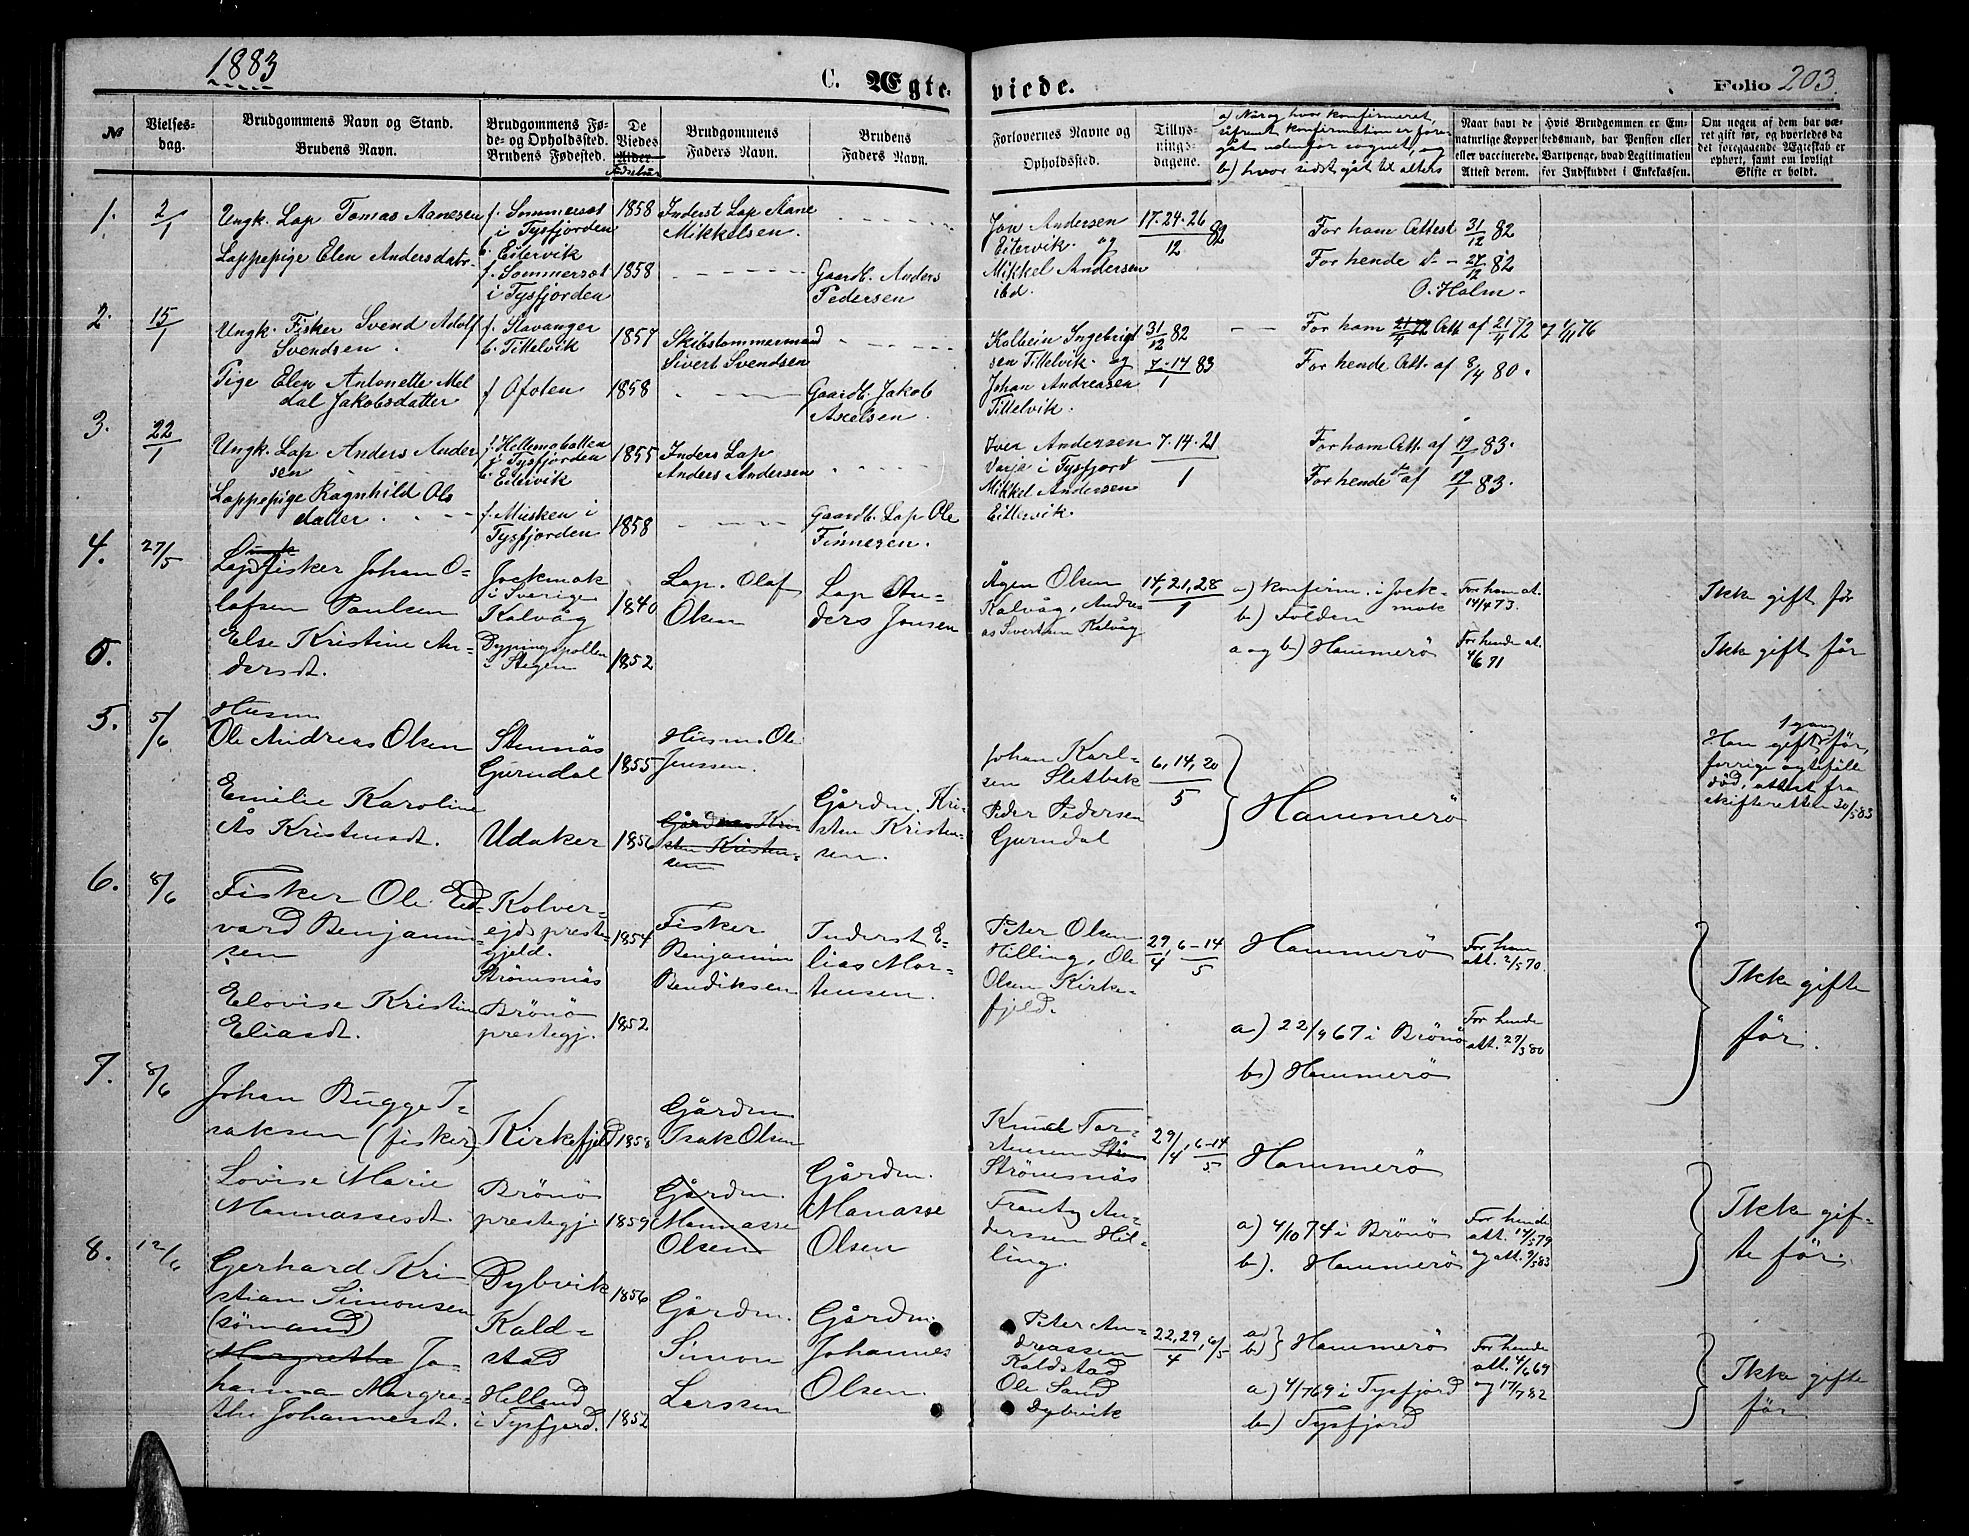 1883
C. Ægte-
viede.
Folio 203.
№
Vielses-
dag.
Brudgommens Navn og Stand.
Brudens Navn.
Brudgommens Fø-
de- og Opholdssted.
Brudens Fødested.
De
Viedes
Alder
Fødselsaar
Brudgommens
Faders Navn.
Brudens
Faders Navn.
Forlovernes Navne og
Opholdssted.
Tillys-
nings-
dagene.
a) Når og hvor konfirmeret,
såfremt konfirmation er fore-
gåt udenfor sognet, og
b) hvor sidst gåt til alters
Naar havt de
naturlige Kopper
eller vaccinerede.
Attest derom.
Hvis Brudgommen er Em-
bedsmand, har Pension eller
Vartpenge, hvad Legitimation
for Indskuddet i Enkekassen.
Om nogen af dem har væ-
ret gift før, og hvorledes da
det foregaaende Ægteskab er
ophørt, samt om lovligt
Skifte er holdt.
1.
2/1
Ungk. Lap Tomas Aanesen
Lappepige Elen Andersdatr.
f. Sommerset
i Tysfjorden
b. Eitervik
f. Sommerset
i Tysfjorden
1858
1858
Inderst Lap Aane
Mikkelsen.
Gaardb. Anders
Pedersen
Jon Andersen
Eitervik. og
Mikkel Andersen
ibd.
17-24-26/12 82
For ham Attest 31/12 82
For hende d° - 27/12 82
O. Holm.
2.
15/1
Ungk. Fisker Svend Adolf
Svendsen.
Pige Elen Antonette Mel
dal Jakobsdatter
f. Stavanger
b. Tittelvik
f Ofoten
1857
1858
Skibstømmermand
Sivert Svendsen
Gaardb. Jakob
Axelsen.
Kolbein Ingebrigt
sen Tittelvik. og
Johan Andreasen
Tittelvik.
31/12 82
7-14/1 83
For ham 21/4 72 Att af 21/4 72 og 1/11 76
For hende Att. af 8/4 80.
3.
22/1
Ungk. Lap Anders Ander
sen
Lappepige Ragnhild Ols
datter.
f. Hellemobotten
i Tysfjorden
b. Eitervik
f. Musken i
Tysfjorden
1855
1858
Inders Lap
Anders Andersen
Gaardb. Lap Ole
Finnesen.
Iver Andersen
i Tysfjord
Mikkel Andersen
Eittervik.
7-14-21/1
For ham Att. af 19/1 83.
For hende d° af 19/1 83.
4.
27/5
Lap fisker Johan O-
lafsen Paulsen
Else Kristine An-
dersdt.
Jockmok
i Sverige
Kalvåg
i Stegen
1840
1852
Lap. Olaf
Olsen
Lap An-
ders Jonsen
Ågen Olsen
Kalvåg, Andre
as Sivertsen Kalvåg
14, 21, 28/1
a) konfirm. i Jock-
mok
b) Folden
a og b) Hammerö
For ham at.
14/4 73.
For hende at.
4/6 71
Ikke gift før
Ikke gift før
5.
5.
5/6
Husm.
Ole Andreas Olsen
Emelie Karoline
Ås Kristensdt.
Stennäs
Gurndal
Udaker
1855
1856
Husm. Ole
Jenssen.
Gårdm. Kri-
sten Kristen-
sen
Gårdm. Kri-
sten Kristen-
sen.
Johan Karl-
sen Sletbak
Peder Pedersen
Gurndal
6, 14, 20/5
Hammerö
1 gang
Han gift før,
forrige ægtefælle
død, attest fra
skifteretten 30/5 83
6.
8/6
Fisker Ole Ed-
vard Benjamin-
sen
Elovise Kristine
Eliasdt.
Kolver-
ejds preste-
gjeld.
Strömsnäs
Brönö
prestegj.
1854
1852
Fisker
Benjamin
Bendiksen
Inderst E-
lias Mor-
tensen.
Peter Olsen
Hilling, Ole
Olsen Kirke-
fjeld.
29/4, 6-14/5
Hammerö
a) 22/9 67 i Brönö
b) Hammerö
For ham
att. 2/5 70.
For hende
att. 27/5 80
Ikke gifte
før.
7.
8/6
Johan Bugge I-
saksen (fisker)
Lovise Marie
Mannassesdt.
Kirkefjeld
Brönö
prestegj.
1858
1859
Gårdm
Isak Olsen
Gårdm.
Mannasse
Olsen
Gårdm.
Manasse
Olsen
Knud Tor-
stensen Ström
Strömsnäs
Frants An-
derssen Hil-
ling.
29/4, 6-14/5
Hammerö
a) 4/10 74 i Brönö
b). Hammerö
For hende
att. 14/5 79
og att. 9/5 83
Ikke gif-
te før.
8.
12/6
Gerhard Kri-
stian Simonsen
(sømand)
Margrethe Jo-
hanna Margre-
the Johannesdt.
Dybvik
Kald-
stad
Helland
i Tysfjord.
1856
1852
Gårdm.
Simon
Larssen
Gårdm.
Johannes
Olsen.
Peter An-
dreassen
Kaldstad
Ole Sand
Dybvik
22, 29/4, 6/5
a)
b) Hammerö
a) 4/7 69 i Tysfjord
b) Tysfjord
For hende
att. 4/6 69
og 17/7 82
Ikke gifte
før